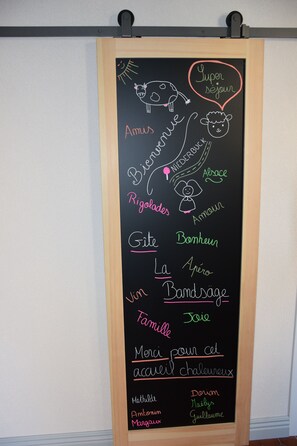 Super
séjour
Amis
Bienvenue
NIEDERBUCK
Alsace
Rigolades
Amour
Gîte
Bonheur
La
Apéro
Vin
Bandsage
Famille
Joie
Merci pour cet
accueil chaleureux
Mathilde
Dorian
Antonin
Maëlys
Margaux
Guillaume